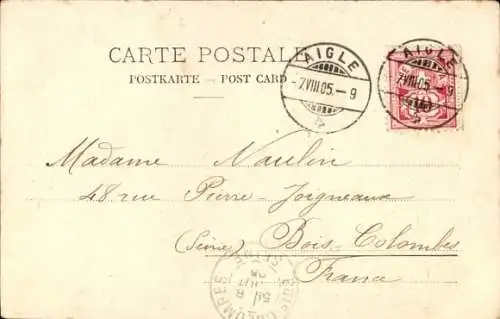 CARTE POSTALE
POSTKARTE – POST CARD
AIGLE
-7.VIII.05.-9
AIGLE
7.VIII.05.-9
10
Madame Naulin
48 rue Pierre-Joigneaux
(Seine) Bois-Colombes
France
BOIS-COLOMBES